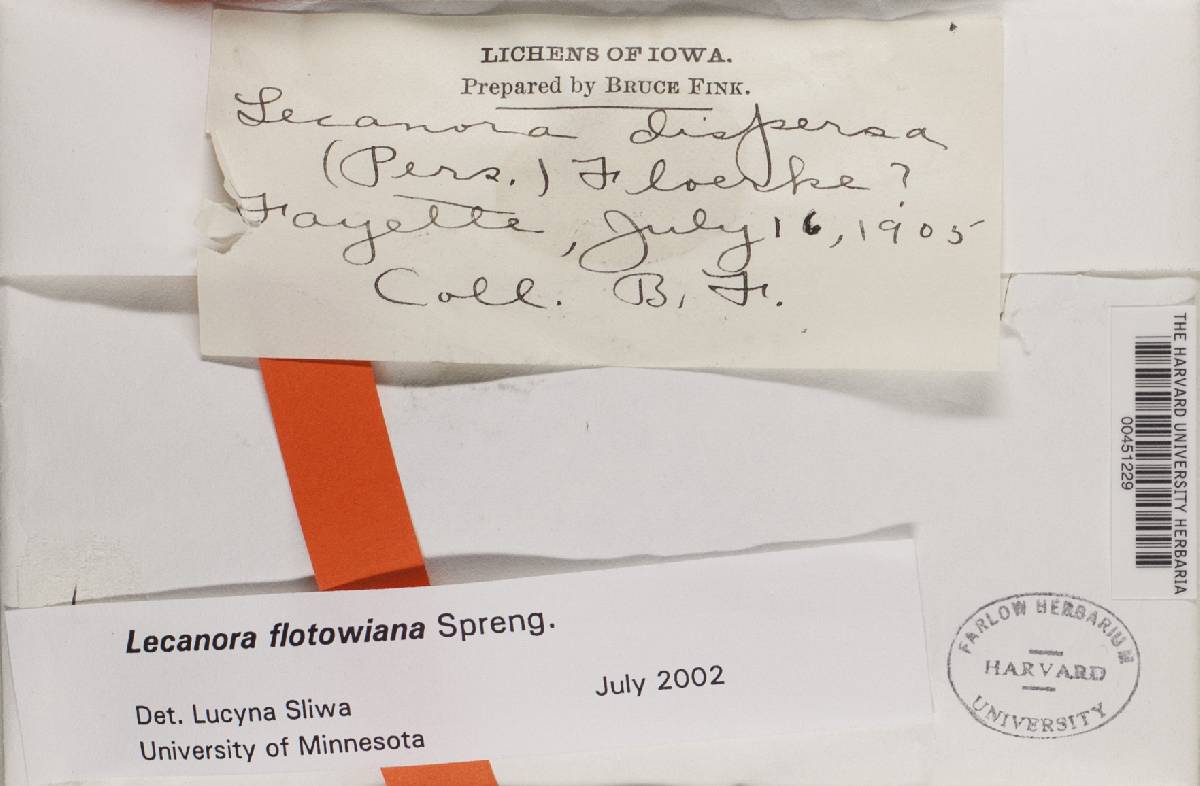 LICHENS OF IOWA.
Prepared by BRUCE FINK.
Lecanora dispersa
(Pers.) Floerke?
Fayette, July 16, 1905
Coll. B. F.
THE HARVARD UNIVERSITY HERBARIA
00451229
Lecanora flotowiana Spreng.
July 2002
Det. Lucyna Sliwa
University of Minnesota
FARLOW HERBARIUM
HARVARD
UNIVERSITY